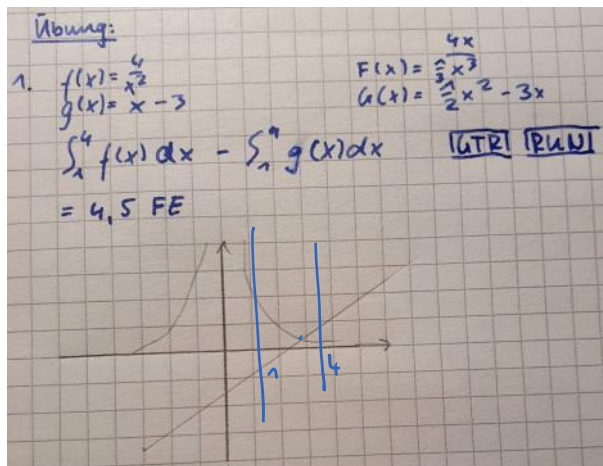 Übung:
1. f(x) = 4/x² F(x) = 4x / ⅓x³
g(x) = x - 3 G(x) = ½x² - 3x
∫₁⁴ f(x) dx - ∫₁⁴ g(x)dx GTR RUN
= 4,5 FE
1 4